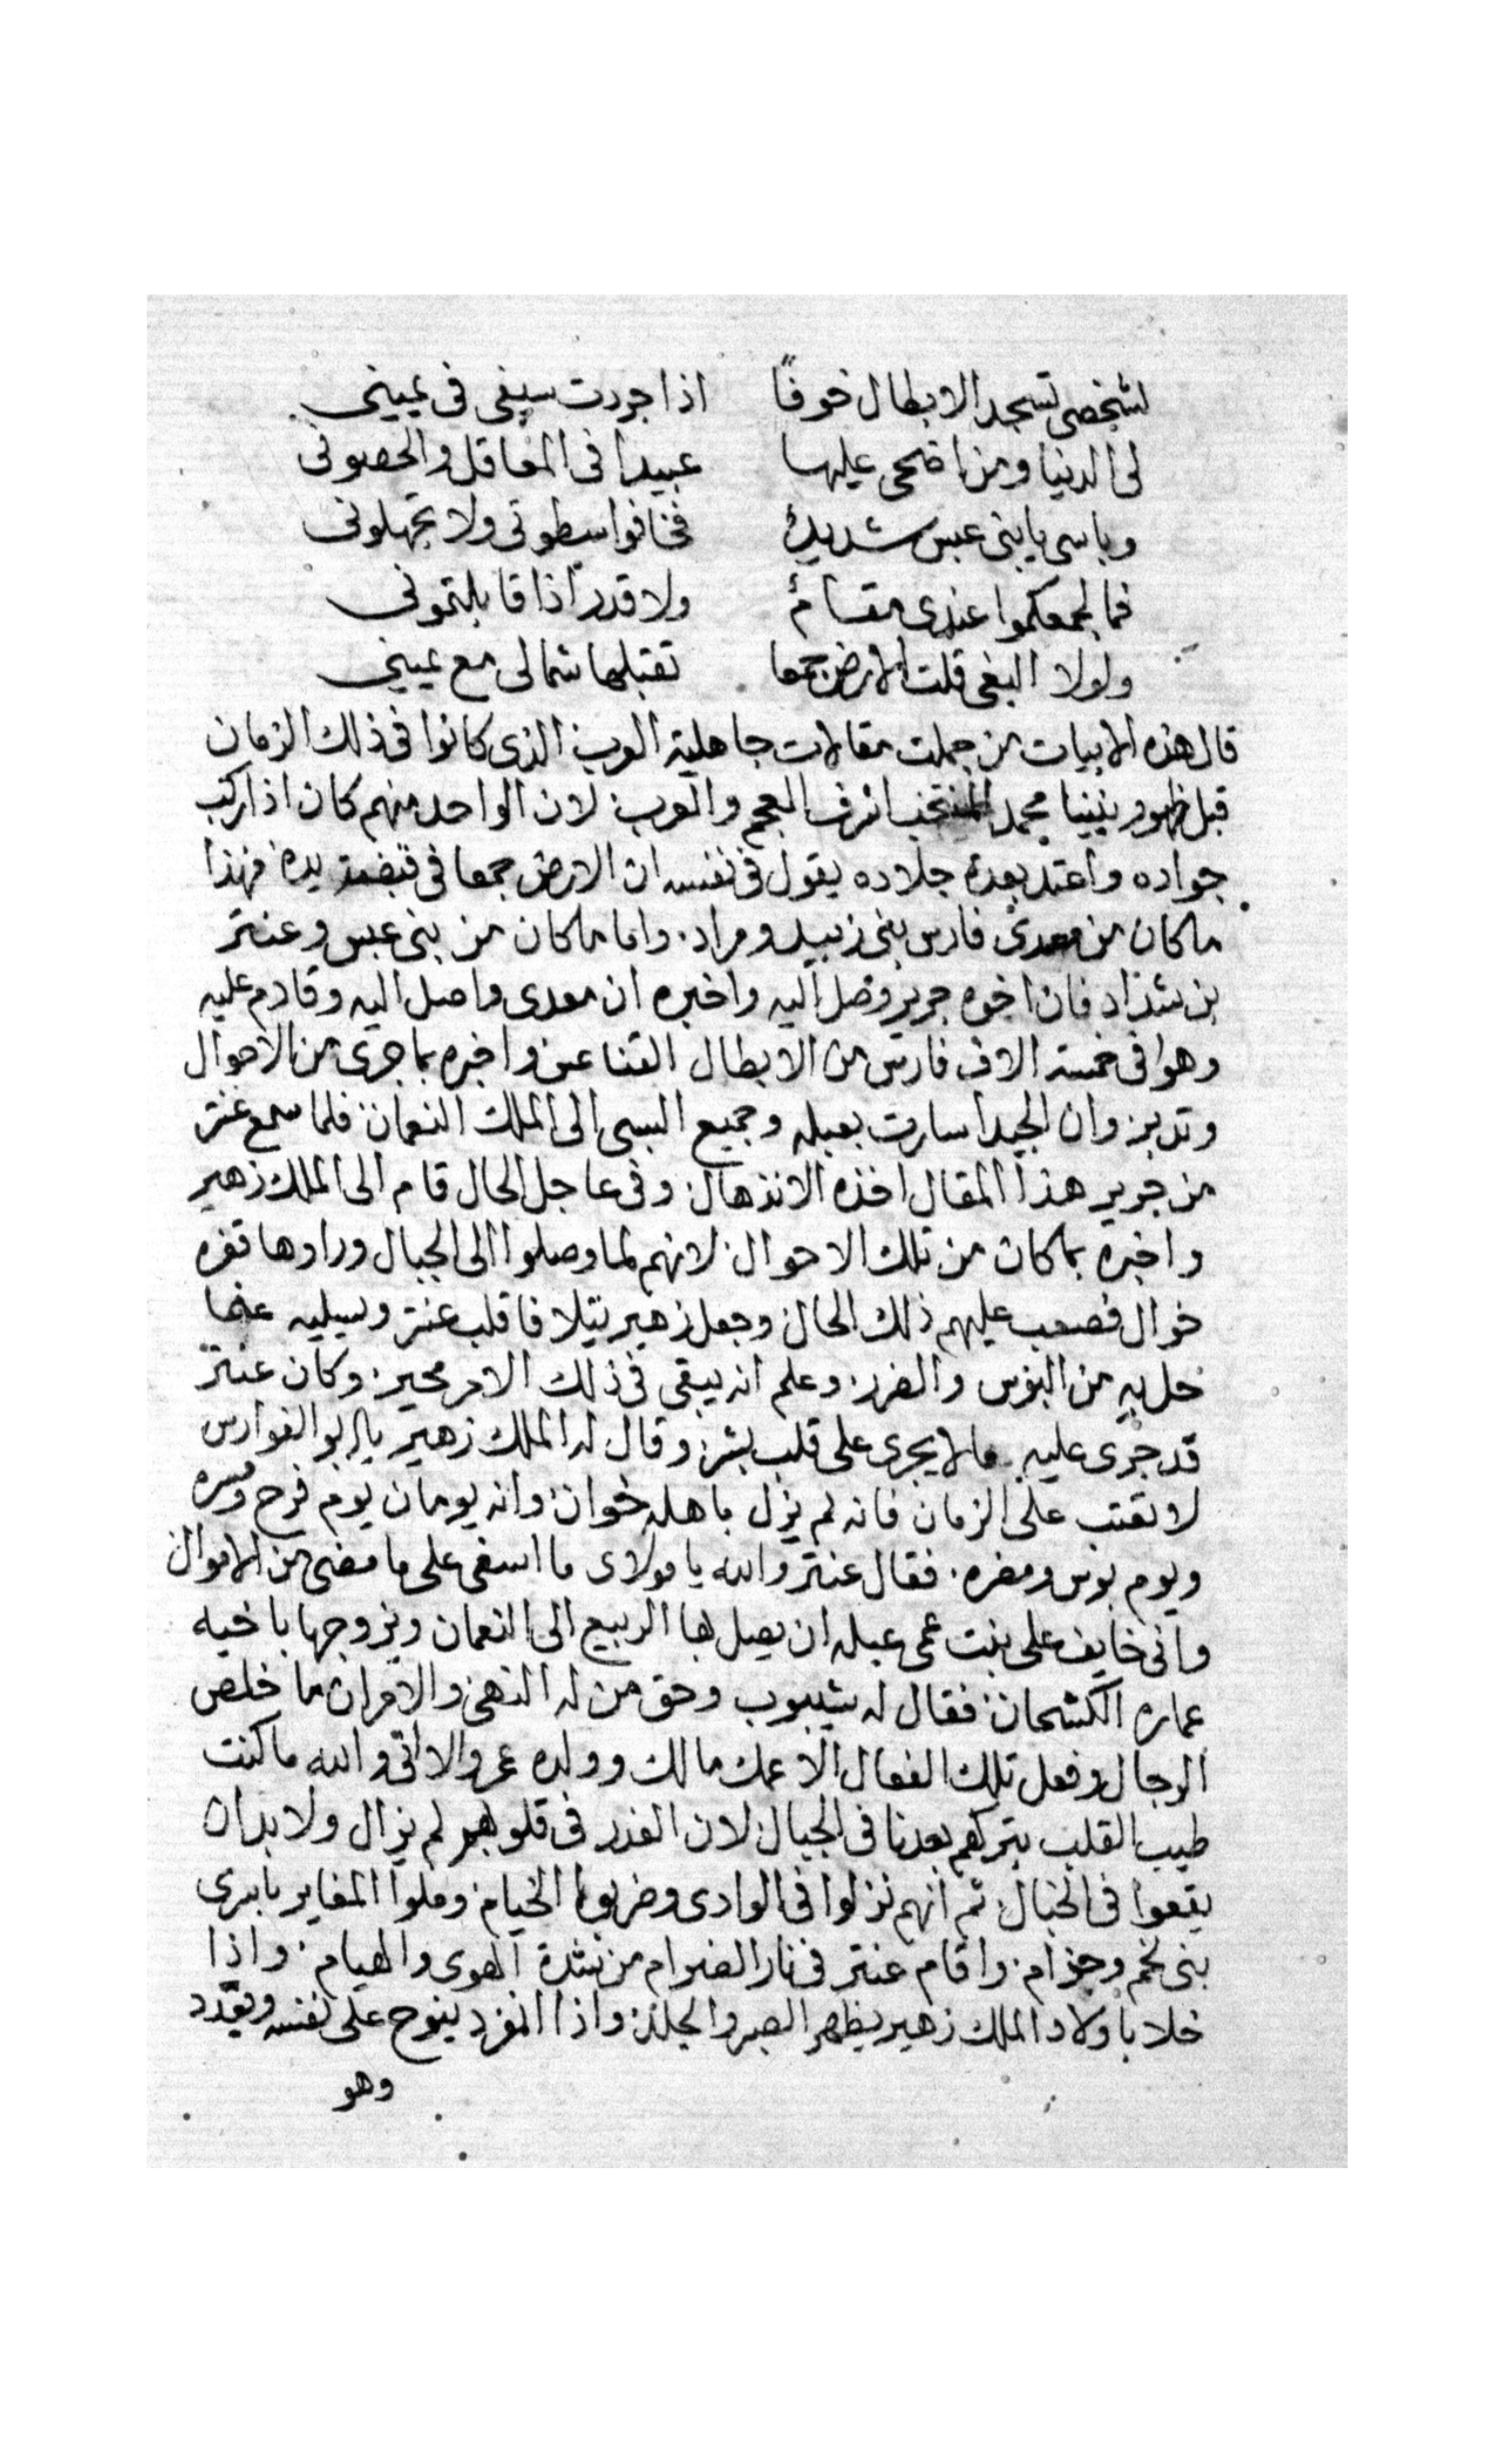 لشخصي تسجد الابطال خوفاً اذا جردت سيفى فى يمينى
لى الدنيا ومن اضحى عليها عبيدا فى المعاقل والحصونى
وباسى يا بنى عبس شديدٌ فخافوا سطوتى ولا تجهلونى
فما لجمعكموا عندى مقامٌ ولا قدر اذا قابلتمونى
ولولا البغى قلت الارض جمعا تقبلها شمالى مع يمينى
قال هذه الابيات من جملت مقالات جاهلية العرب الذى كانوا فى ذلك الزمان
قبل ظهور نبينا محمد المنتخب اشرف العجم والعرب لان الواحد منهم كان اذا ركب
جواده واعتد بعدة جلاده يقول فى نفسه ان الارض جمعا فى قبضة يده فهذا
ما كان من معدى فارس بنى زبيد ومراد واما ما كان من بنى عبس وعنتر
بن شداد فان اخوه جرير وصل اليه واخبره ان معدى واصل اليه وقادم عليه
وهوا فى خمسة الاف فارس من الابطال القناعس واخبره بما جرى من الاحوال
وتدبر وان الجيدا سارت بعبله وجميع السبى الى الملك النعمان فلما سمع عنتر
من جرير هذا المقال اخذه الانذهال وفى عاجل الحال قام الى الملك زهير
واخبره بما كان من تلك الاحوال لانهم لما وصلوا الى الجبال وراوها قفره
خوال فصعب عليهم ذلك الحال وجعل زهير يتلافا قلب عنتر ويسليه عنما
حل به من البؤس والضرر وعلم انه يبقى فى ذلك الامر محير وكان عنتر
قد جرى عليه مالا يجرى على قلب بشر وقال له الملك زهير يا ابو الفوارس
لا تعتب على الزمان فانه لم يزل باهله خوان وانه يومان يوم فرح ومسره
ويوم بوس ومضره فقال عنتر والله يا مولاى ما اسفى على ما مضى من الاموال
وانى خايف على بنت عمى عبله ان يصل بها الربيع الى النعمان ويزوجها باخيه
عماره الكشحان فقال له شيبوب وحق من له النهى والامران ما خلص
الرجال وفعل تلك الفعال الا عمك مالك وولده عمرو الا انى والله ما كنت
طيب القلب بتركهم بعدنا فى الجبال لان الغدر فى قلوبهم لم يزال ولا بد ان
يقعوا فى الخبال ثم انهم نزلوا فى الوادى وضربوا الخيام وملوا المغاير باسرى
بنى لخم وجزام واقام عنتر فى نار الضرام من شدة الهوى والهيام واذا
خلا باولاد الملك زهير يظهر الصبر والجلد واذا انفرد ينوح على نفسه ويعدد
وهو